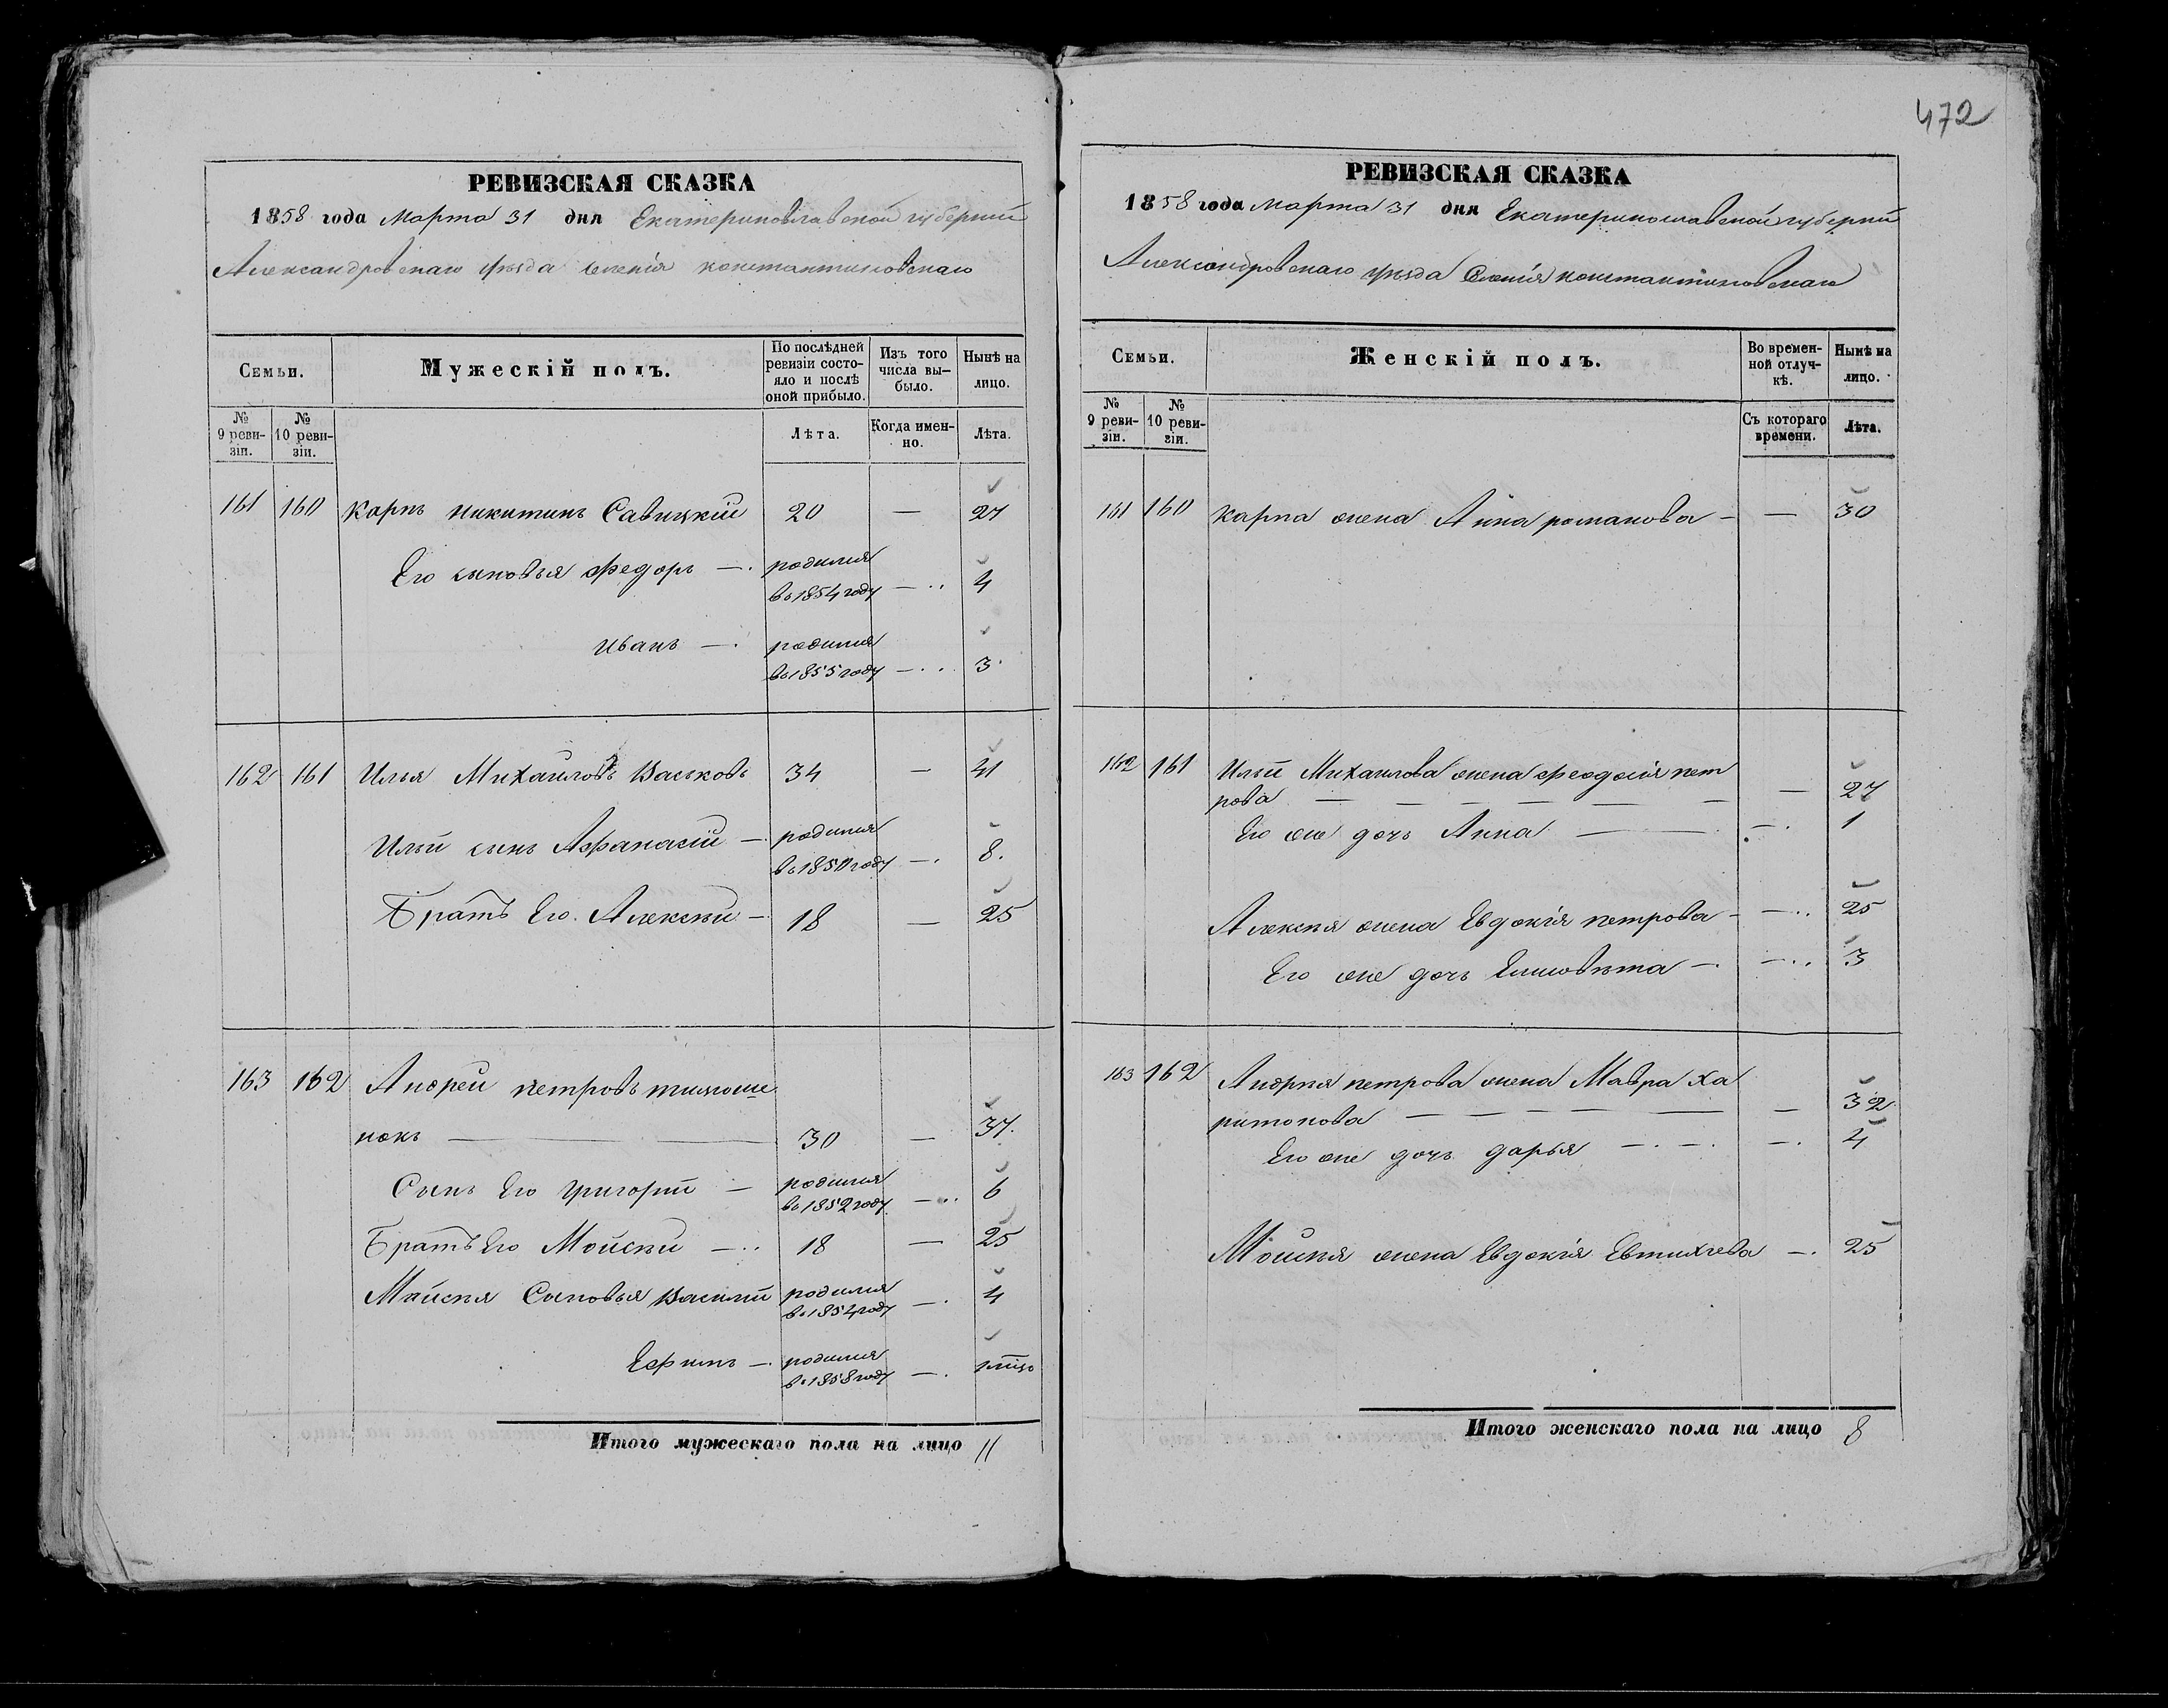 РЕВИЗСКАЯ СКАЗКА
1858 года Марта 31 дня Екатеринославской губернии
Александровскаго уезда селенія константиновскаго
Семьи.
Мужескій полъ.
По послѣдней ревизіи состо-яло и послѣ оной прибыло.
Изъ того числа вы-было.
Нынѣ на лицо.
№ 9 реви-зіи.
№ 10 реви-зіи.
Лѣта.
Когда имен-но.
Лѣта.
161 160 Карпъ никитинъ Савицкій 20 — 27
Его сыновья Федоръ —. родился
въ 1854 году — .. 4
иванъ —. родился
въ 1855 году — .. 3
162 161 Илья Михаиловъ Васьковъ 34 — 41
Ильи сынъ Афанасій —. родился
въ 1850 году —. 8.
Братъ Его Алексѣй — 18 — 25
163 162 Андрей петровъ тимоше
нокъ — — 30 — 37.
Сынъ Его григорій — родился
въ 1852 году — .. 6
Братъ Его Мойсѣй — .. 18 — 25
Мойсѣя Сыновья Василій родился
въ 1854 году —. 4
Ефимъ —. родился
въ 1858 году —.
Итого мужескаго пола на лицо 11
472
РЕВИЗСКАЯ СКАЗКА
1858 года марта 31 дня Екатеринославской губерніи
Александровскаго уѣзда Селенія константиновскаго
Семьи.
Женскій полъ.
Во времен-ной отлуч-кѣ.
Нынѣ на лицо.
№ 9 реви-зіи.
№ 10 реви-зіи.
Съ котораго времени.
Лѣта.
161 160 Карпа жена Анна романова — — 30
162 161 Ильи Михаилова жена Феодосія пет
рова — — — — — — — 27
Его же дочь Анна — —. 1
Алексѣя жена Евдокія петрова — — .. 25
Его же дочь Елисовѣта —. — .. 3
163 162 Андрѣя петрова жена Мавра Ха
ритонова — — — — — — 32
Его же дочь дарья —. —. —. 4
Мойсѣя жена Евдокія Евтихіева —. 25
Итого женскаго пола на лицо 8